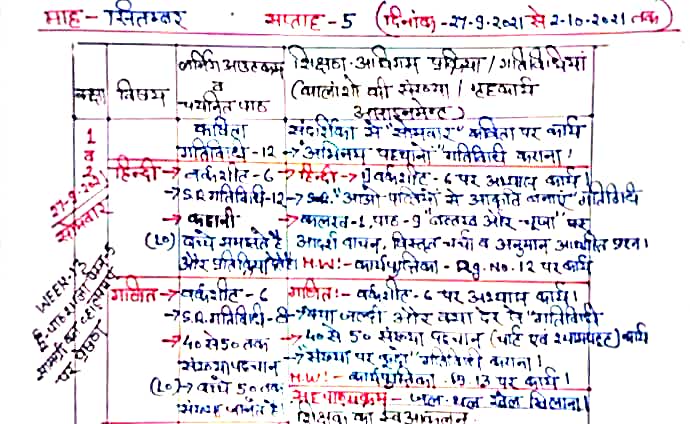 माह- सितम्बर सप्ताह-5 (दिनांक-27-9-2021 से 2-10-2021 तक)
कक्षा विषय लर्निंग आउटकम व चयनित पाठ शिक्षण-अधिगम प्रक्रिया/गतिविधियां
(कालांशो की संख्या / गृहकार्य
आसाइनमेन्ट)
1 व 2
27-9-2021
सोमवार
कविता संदर्शिका से "सोमवार" कविता पर कार्य
गतिविधि-12 → "अभिनय पहचानो" गतिविधि कराना।
हिन्दी → वर्कशीट-6 → हिन्दी → वर्कशीट-6 पर अभ्यास कार्य।
→ S.R.गतिविधि-12 → S.R. "आओ पत्तियों से आकृति बनाएं" गतिविधि
→ कहानी → कलरव-1, पाठ-9 "बत्तख और चूजा" पर
(LO) बच्चे समझते है आदर्श वाचन, विस्तृत चर्चा व अनुमान आधारित प्रश्न।
और प्रतिक्रिया देते है। H.W:- कार्यपुस्तिका - Pg.No.12 पर कार्य
गणित → वर्कशीट-6 गणित:- वर्कशीट-6 पर अभ्यास कार्य।
→ S.R.गतिविधि-8 → "क्या जल्दी और क्या देर से" गतिविधि
→ 40 से 50 तक → 40 से 50 संख्या पहचान (चार्ट एवं श्यामपट्ट) कार्य
संख्या पहचान → "संख्या पर कूदो" गतिविधि कराना।
(LO) → बच्चे 50 तक H.W:- कार्यपुस्तिका. Pg.13 पर कार्य।
संख्या जानते है। सहपाठ्यक्रम - जल-थल खेल खिलाना।
शिक्षक का स्व आकलन
WEEK-13